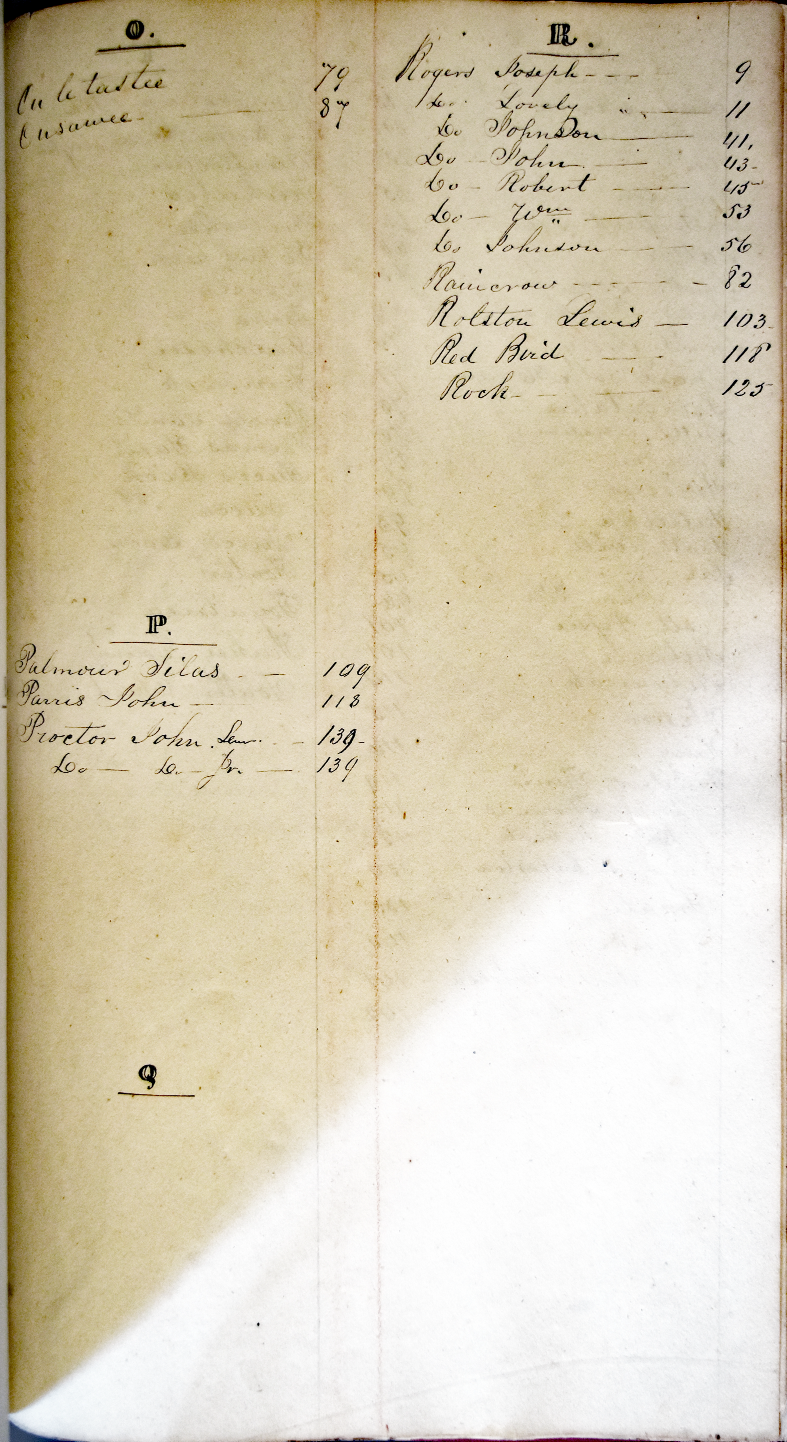 O.
79
Ousawee 87
P.
Palmour Silas 109
Parris John 118
Proctor John Senr. 139
Do Do Jr. 139
Q
R.
Rogers Joseph 9
Do Lovely " 11
Do Johnson 41.
Do John 43
Do Robert 45
Do Wm 53
Do Johnson 56
Raincrow 82
Rolston Lewis 103
Red Bird 118
Rock 125